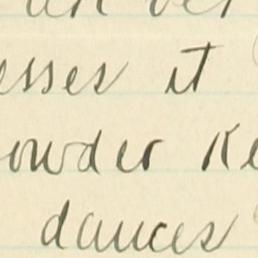 esses it
owder Ke
dances